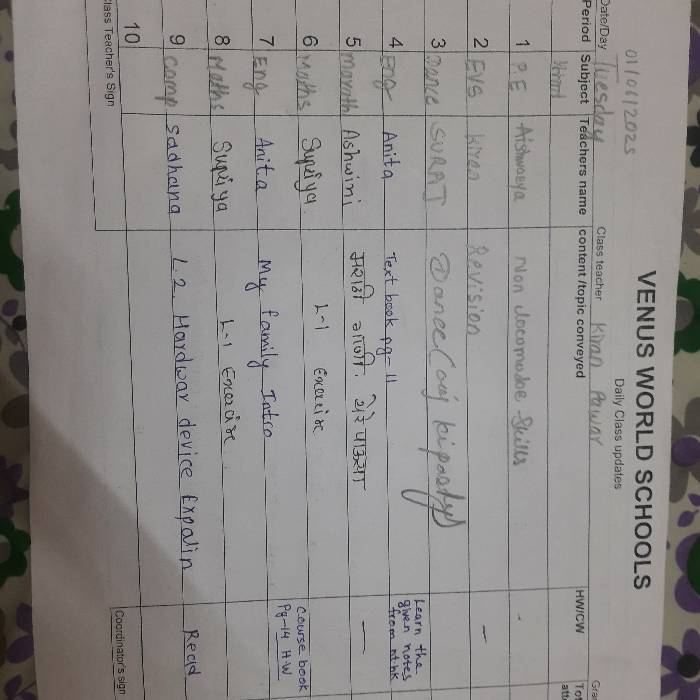 VENUS WORLD SCHOOLS
Daily Class updates
01/07/2025
Date/Day Tuesday Class teacher Kiran Pawar
Period Subject Teachers name content /topic conveyed HW/CW
1 P.E Aishwarya Non locomodoe Skills -
2 EVS Kiran Revision —
3 Dance SURAJ Dance
4 Eng Anita Text book pg-11 Learn the given notes from
5 Marathi Ashwini मराठी —
6 Maths Supriya. L-1 Exercise
7 Eng Anita My family Intro Course book Pg-14 H.W
8 Maths Supriya L-1 Exercise
9 Comp Sadhana L.2. Hardwar device Expalin Read
10
Class Teacher's Sign Coordinator's sign